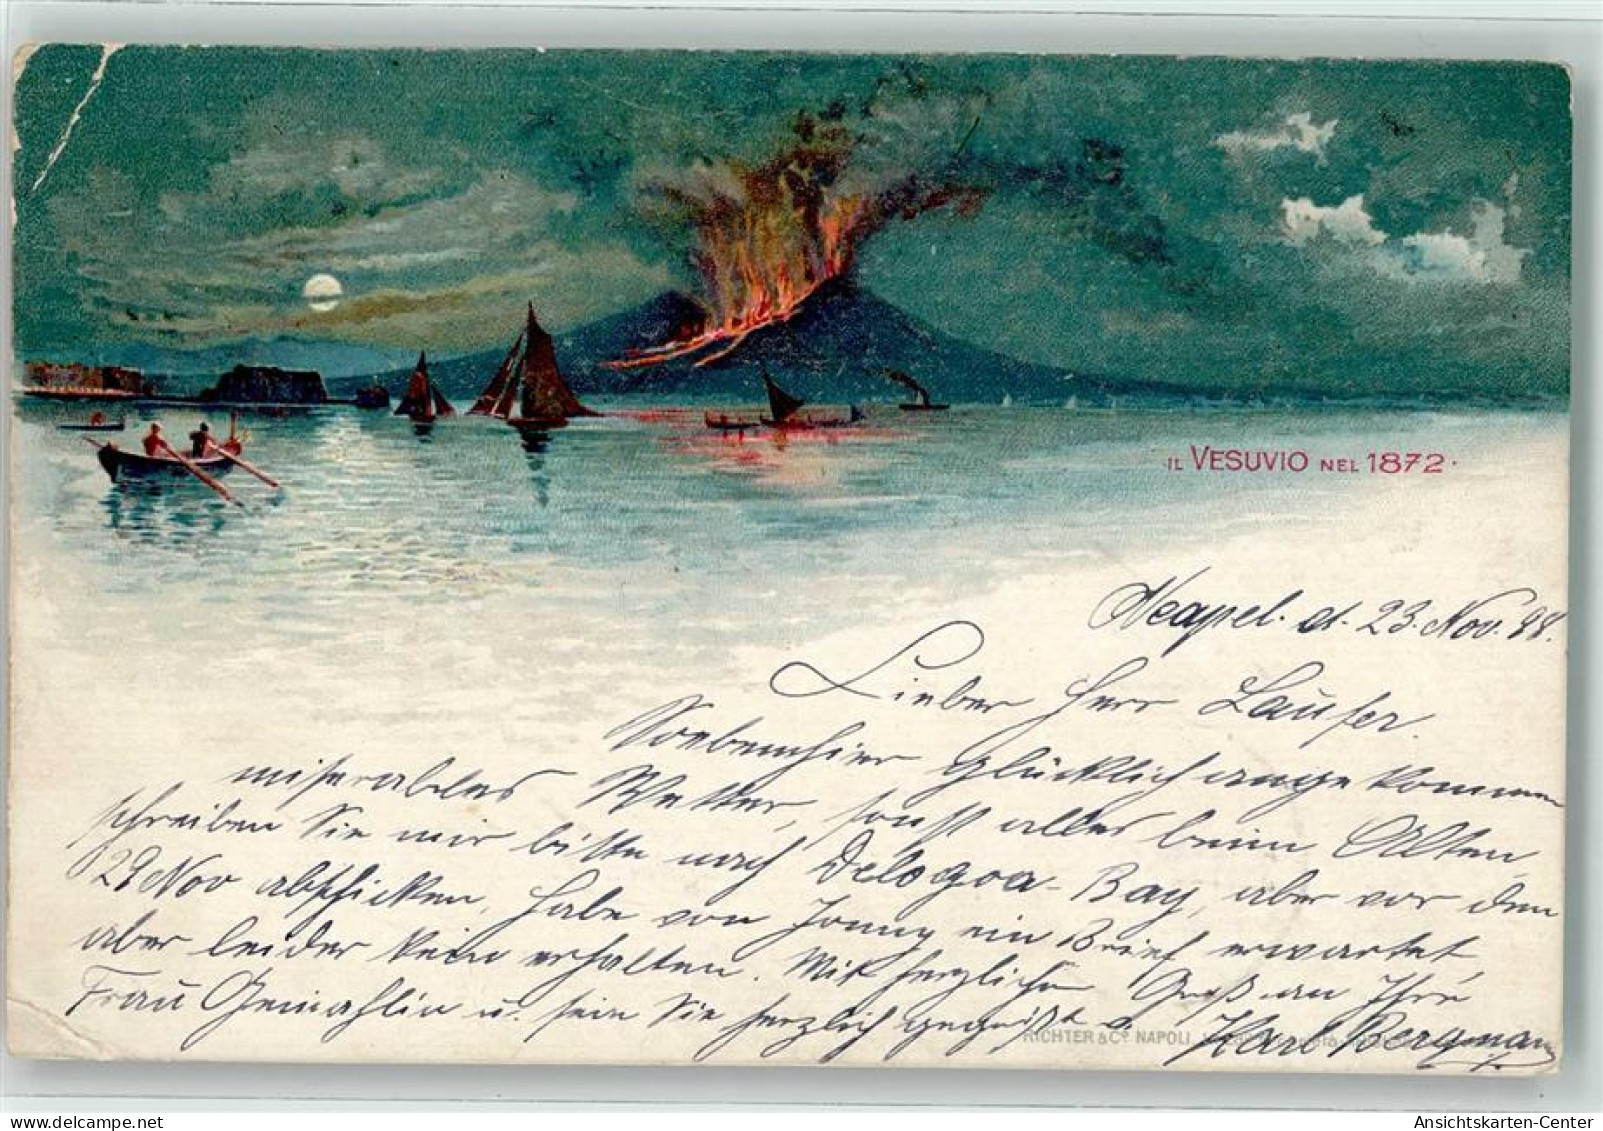 IL VESUVIO NEL 1872.
Neapel. d. 23. Nov. 98.
Lieber Herr Laufer.
Soeben hier glücklich angekommen
miserables Wetter, sonst alles beim Alten,
schreiben Sie mir bitte nach Delogoa-Bay, aber vor den
29 Nov abschicken, habe von Jonny ein Brief erwartet,
aber leider kein erhalten. Mit herzlichen Gruß an Ihre
Frau Gemahlin u. sein Sie herzlich gegrüßt
Karl Bergmann
RICHTER & Co. NAPOLI
Ansichtskarten-Center